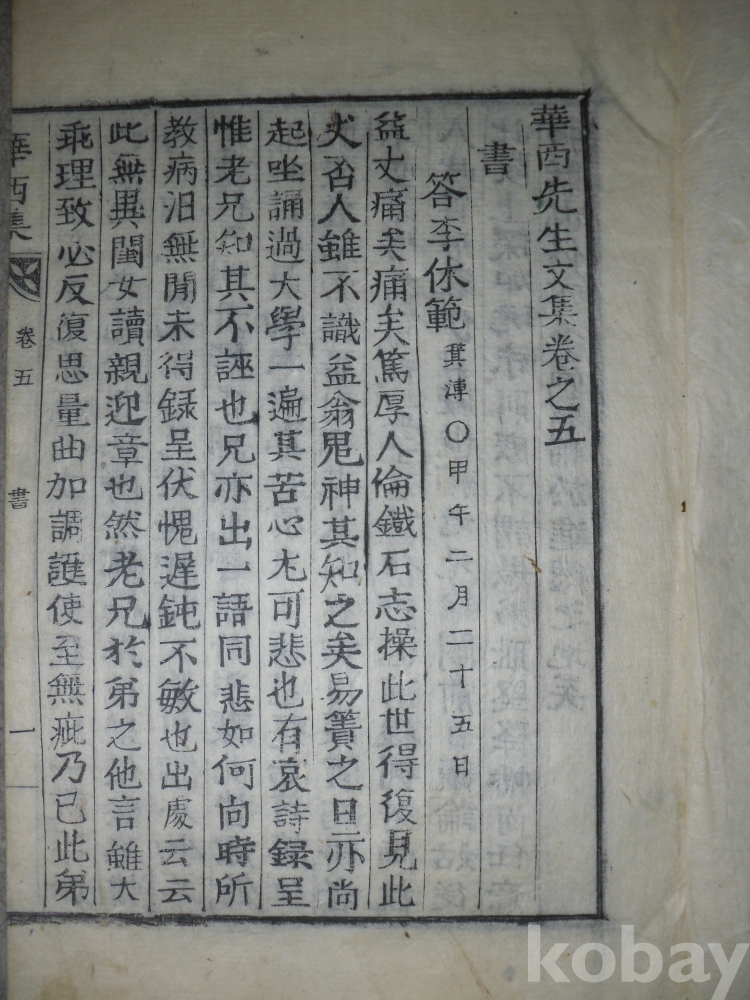 華西先生文集卷之五
書
答李休範 箕溥○甲午二月二十五日
益丈痛矣痛矣篤厚人倫鐵石志操此世得復見此
丈否人雖不識益翁鬼神其知之矣易簀之日亦尚
起坐誦過大學一遍其苦心尤可悲也有哀詩錄呈
惟老兄知其不誣也兄亦出一語同悲如何向時所
教病汨無閒未得錄呈伏愧遲鈍不敏也出處云云
此無異閨女讀親迎章也然老兄於弟之他言雖大
乖理致必反復思量曲加調護使至無疵乃已此弟
華西集 卷五 書 一
kobay